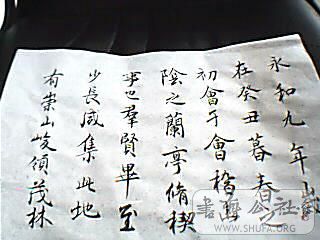 永和九年歲
在癸丑暮春
初會于會稽山
陰之蘭亭脩禊
事也羣賢畢至
少長咸集此地
有崇山峻領茂林
書法公社
www.SHUFA.ORG